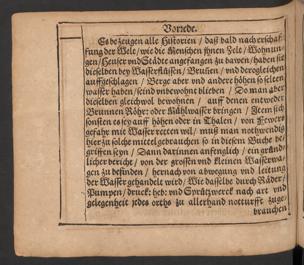 Vorrede.
Es bezeugen alle Historien / daß bald nach erschaf-
fung der Welt / wie die Menschen ihnen Zelt / Wohnun-
gen / Heuser vnd Städte angefangen zu bawen / haben sie
dieselben bey Wasserflüssen / Brunen / vnd dergleichen
auffgeschlagen / Berge aber vnd andere höhen so selten
wasser haben / seind vnbewohnt blieben / Do man aber
dieselben gleichwol bewohnen / auff denen entweder
Brunnen Röhr: oder Kühlwasser bringen / Item sich
sonsten es sey auff höhen oder in Thalen / vor Fewers
gefahr mit Wasser retten wil / muß man nothwendig
hier zu solche mittel gebrauchen so in diesem Buche be-
griffen seyn / Dann darinnen anfenglich / ein gründ-
licher bericht / von der grossen vnd kleinen Wasserwa-
gen zu befinden / hernach von abwegung vnd leitung
der Wasser gehandelt wird / Wie dasselbe durch Räder /
Pumpen / druck: heb: vnd Sprützwerck nach art vnd
gelegenheit jedes orths zu allerhand notturfft zuge-
brauchen